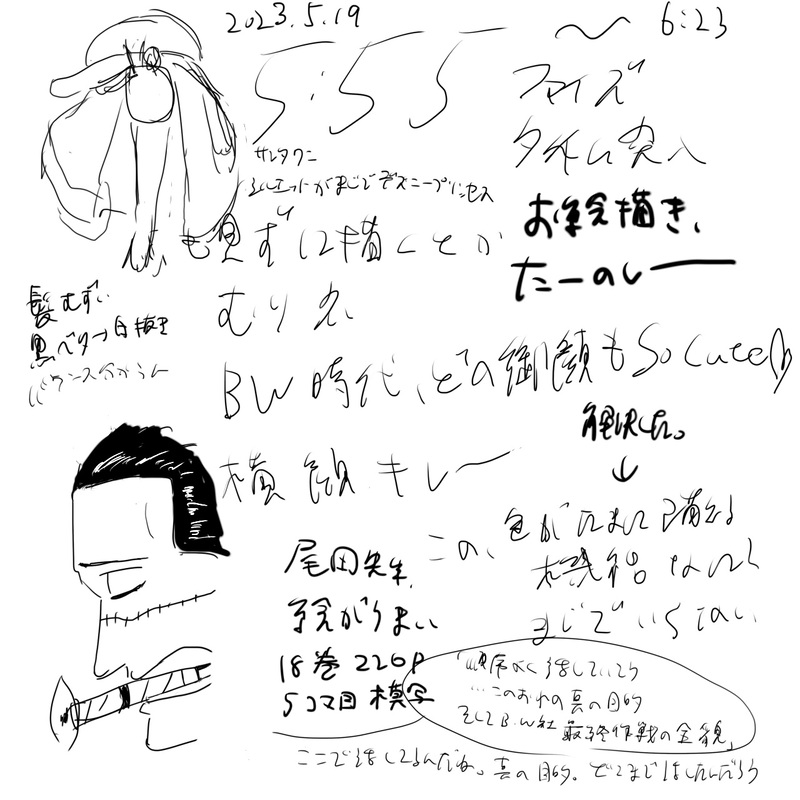 2023.5.19 〜 6:23
5:55
ファイズ
タイム突入
サンタクロ
シルエットがまじでディズニープリンセス
お絵描き、
たーのしー
も見ずに描くとか
むりえ
髪むずい
黒ベタ→白抜き
バランス分からん
BW時代、どの御顔もSo Cute
解決した。
↓
横顔キレー
この、色がたまに踊る
機能なんじゃ
まじでいらない
尾田先生、
絵がうまい
18巻 220P
5コマ目模写
「順序よく話していこう
…このおれの真の目的
そしてB.W社 最終作戦の全貌」
ここで話してるんだね。真の目的。どこまで話したんだろう